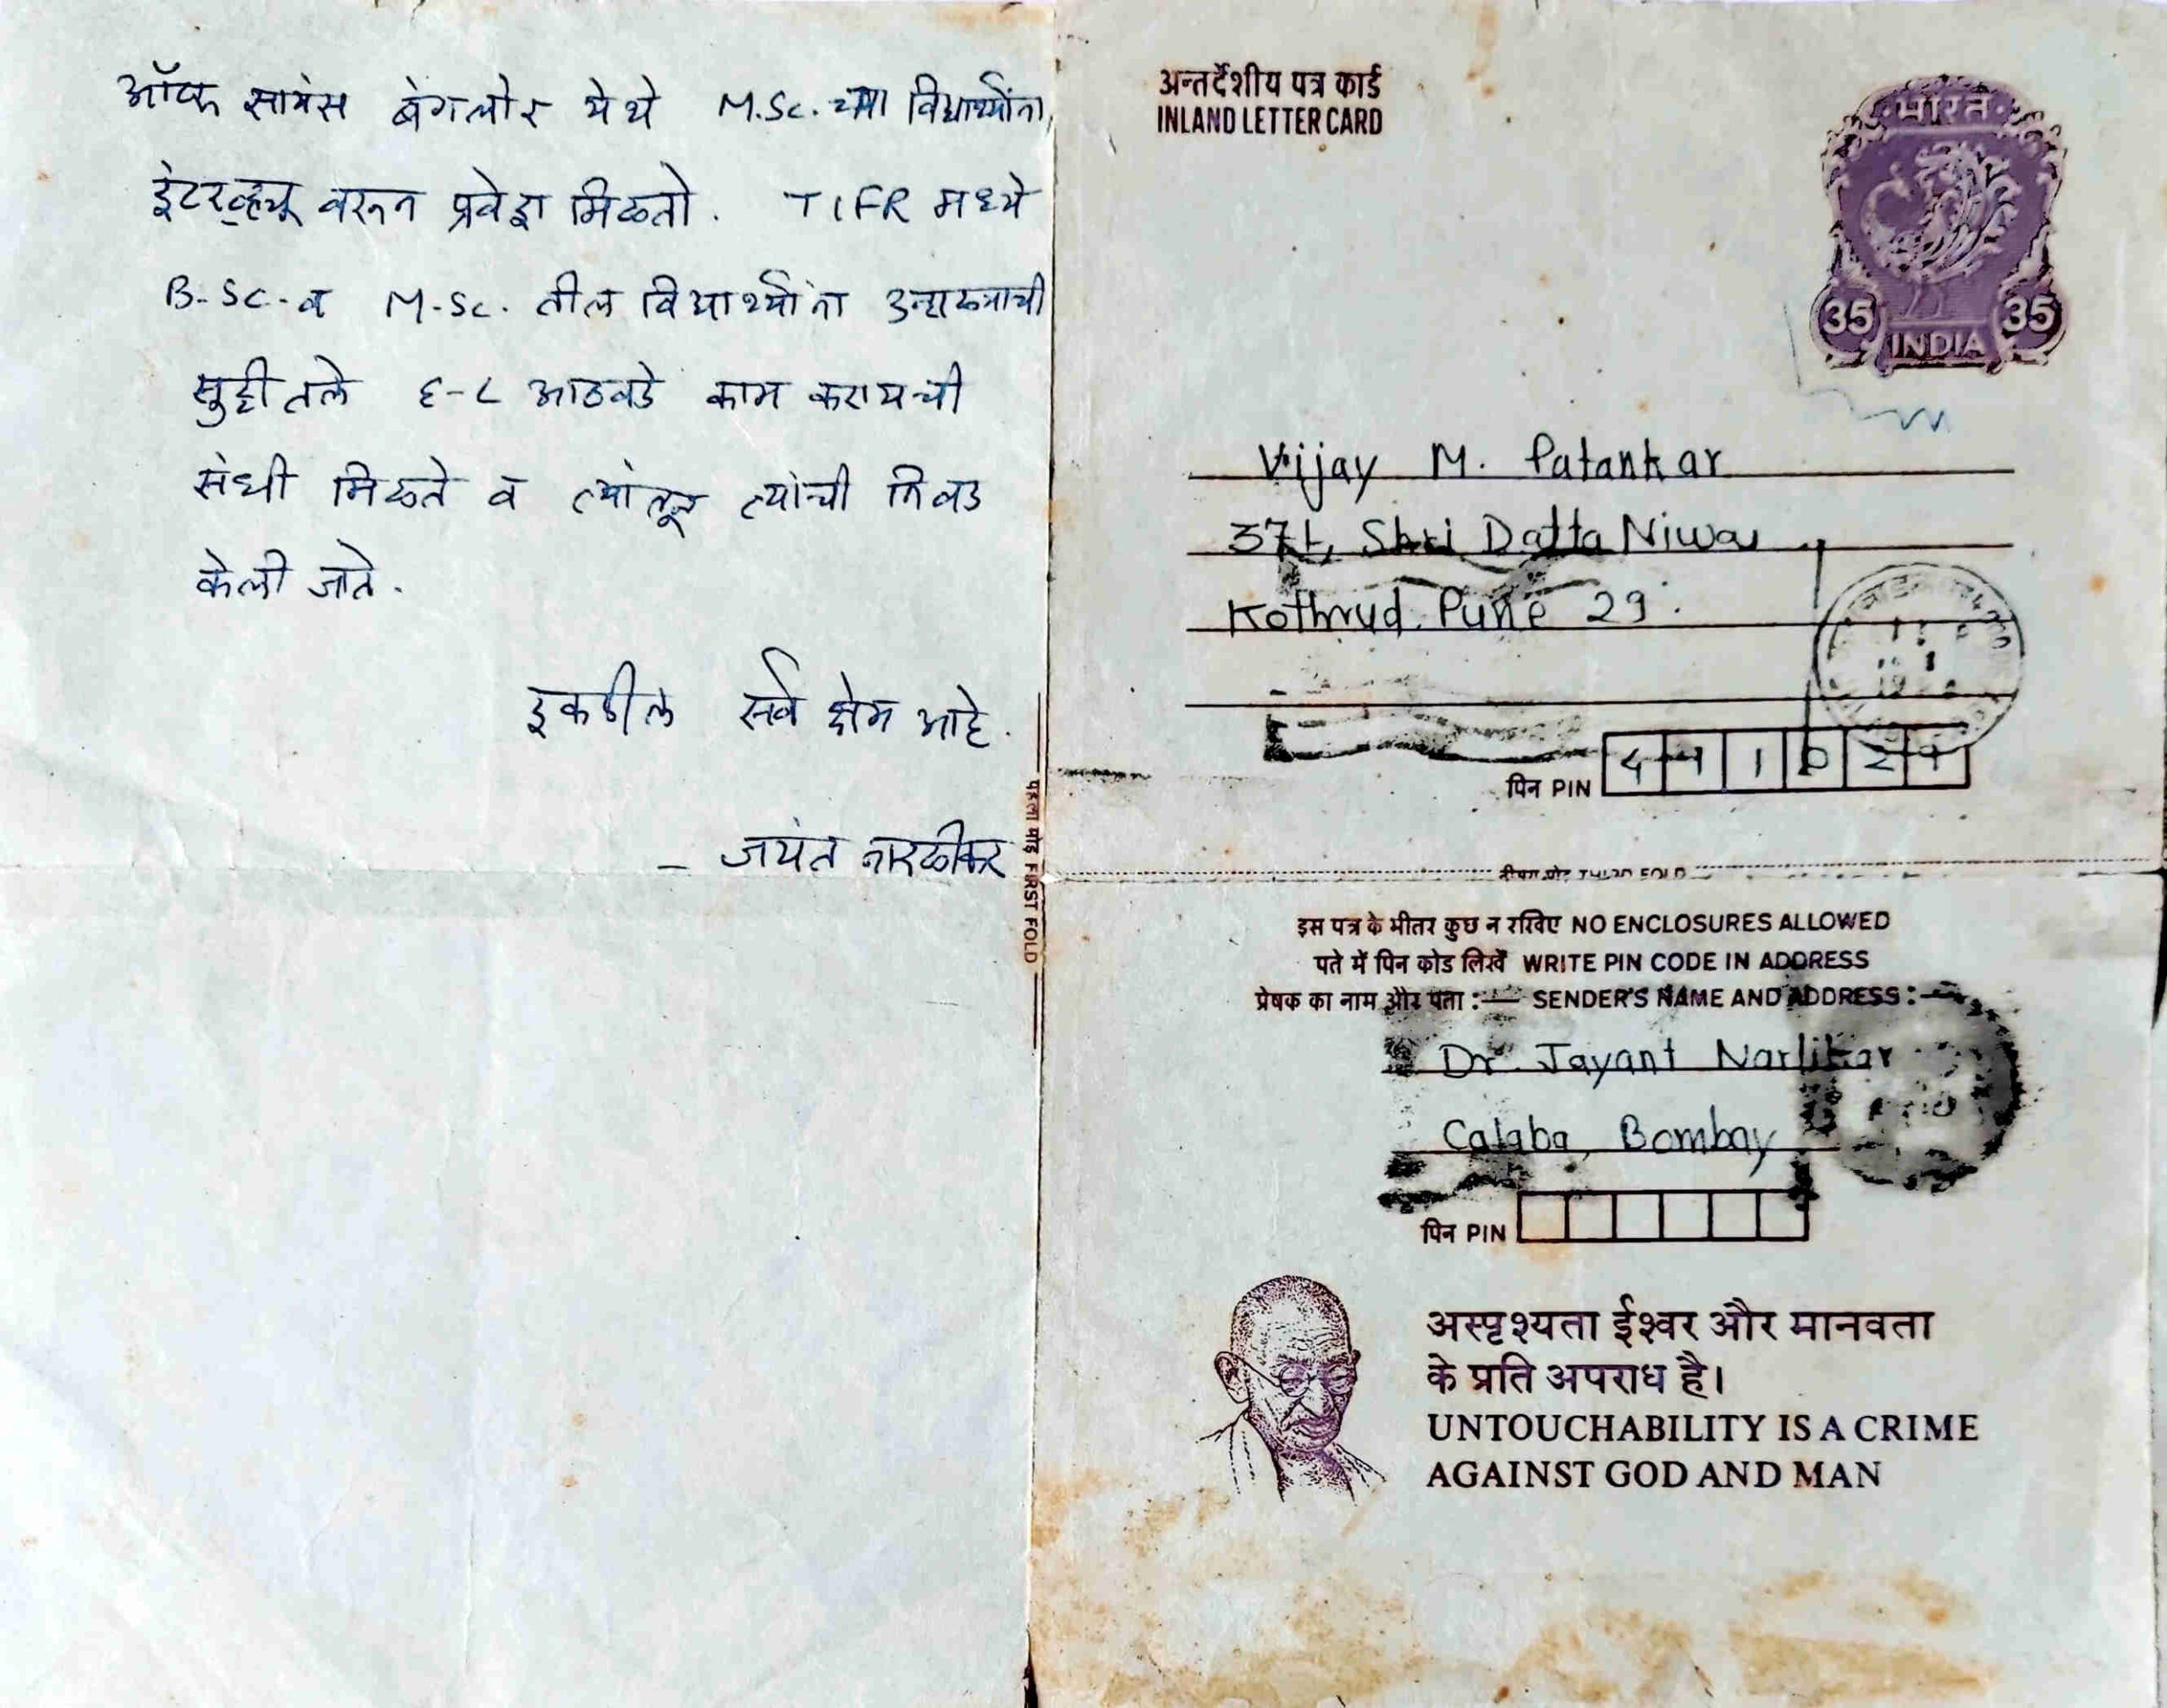 ऑफ सायंस बंगलोर येथे M.Sc. च्या विद्यार्थ्यांना
इंटरव्ह्यू वरून प्रवेश मिळतो. TIFR मध्ये
B.Sc. व M.Sc. तील विद्यार्थ्यांना उन्हाळ्याची
सुट्टीतले ६-८ आठवडे काम करायची
संधी मिळते व त्यांतून त्यांची निवड
केली जाते.
इकडील सर्व क्षेम आहे.
- जयंत नारळीकर
पहला मोड़ FIRST FOLD
अन्तर्देशीय पत्र कार्ड
INLAND LETTER CARD
भारत
35 35
INDIA
Vijay M. Patankar
371, Shri Datta Niwas
Kothrud Pune 29.
पिन PIN 411029
THIRD FOLD
इस पत्र के भीतर कुछ न रखिए NO ENCLOSURES ALLOWED
पते में पिन कोड लिखें WRITE PIN CODE IN ADDRESS
प्रेषक का नाम और पता :— SENDER'S NAME AND ADDRESS :—
Dr. Jayant Narlikar
Calaba, Bombay
पिन PIN
अस्पृश्यता ईश्वर और मानवता
के प्रति अपराध है।
UNTOUCHABILITY IS A CRIME
AGAINST GOD AND MAN